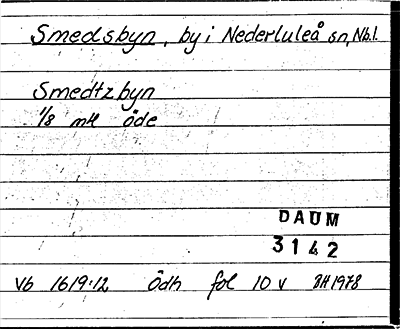 Smedsbyn, by i Nederluleå sn, Nb.l.
Smedtzbyn
1/8 mtl öde
DAUM
3142
Vb 1619:12 Ödh fol 10 v BH 1978